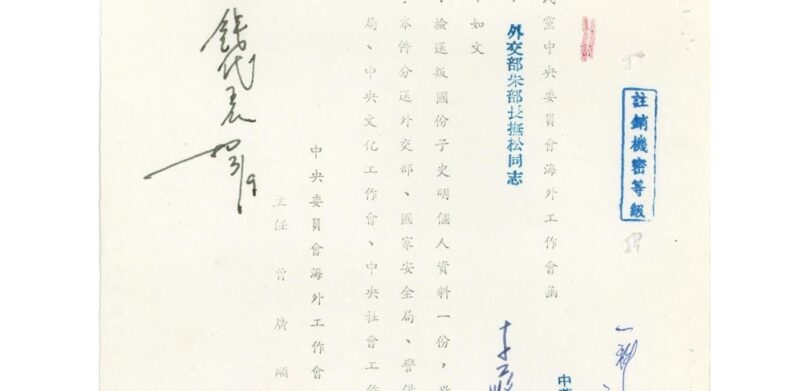 註銷機密等級
民黨中央委員會海外工作會函
外交部朱部長撫松同志
如文
檢送叛國份子史明個人資料一份，
本件分送外交部、國家安全局、警備
局、中央文化工作會、中央社會工作
中央委員會海外工作會
主任 曾廣順